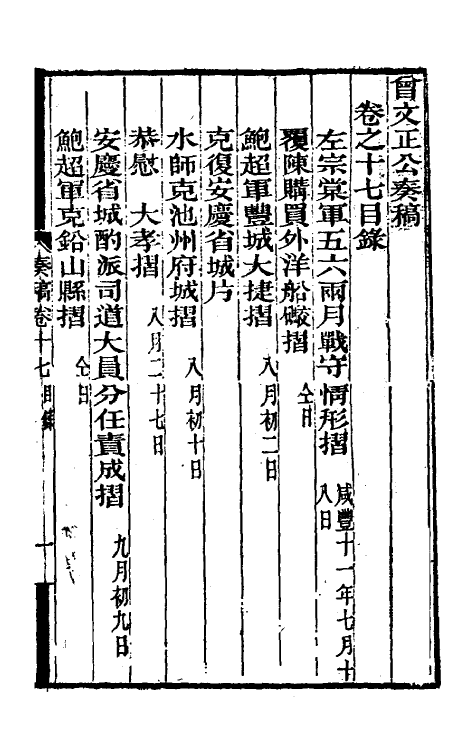 曾文正公奏稿
卷之十七目錄
左宗棠軍五六兩月戰守情形摺 咸豐十一年七月十八日
覆陳購買外洋船礮摺 仝日
鮑超軍豐城大捷摺 八月初二日
克復安慶省城片
水師克池州府城摺 八月初十日
恭慰 大孝摺 八月二十七日
安慶省城酌派司道大員分任責成摺 九月初九日
鮑超軍克鉛山縣摺 仝日
奏稿卷十七目錄 一